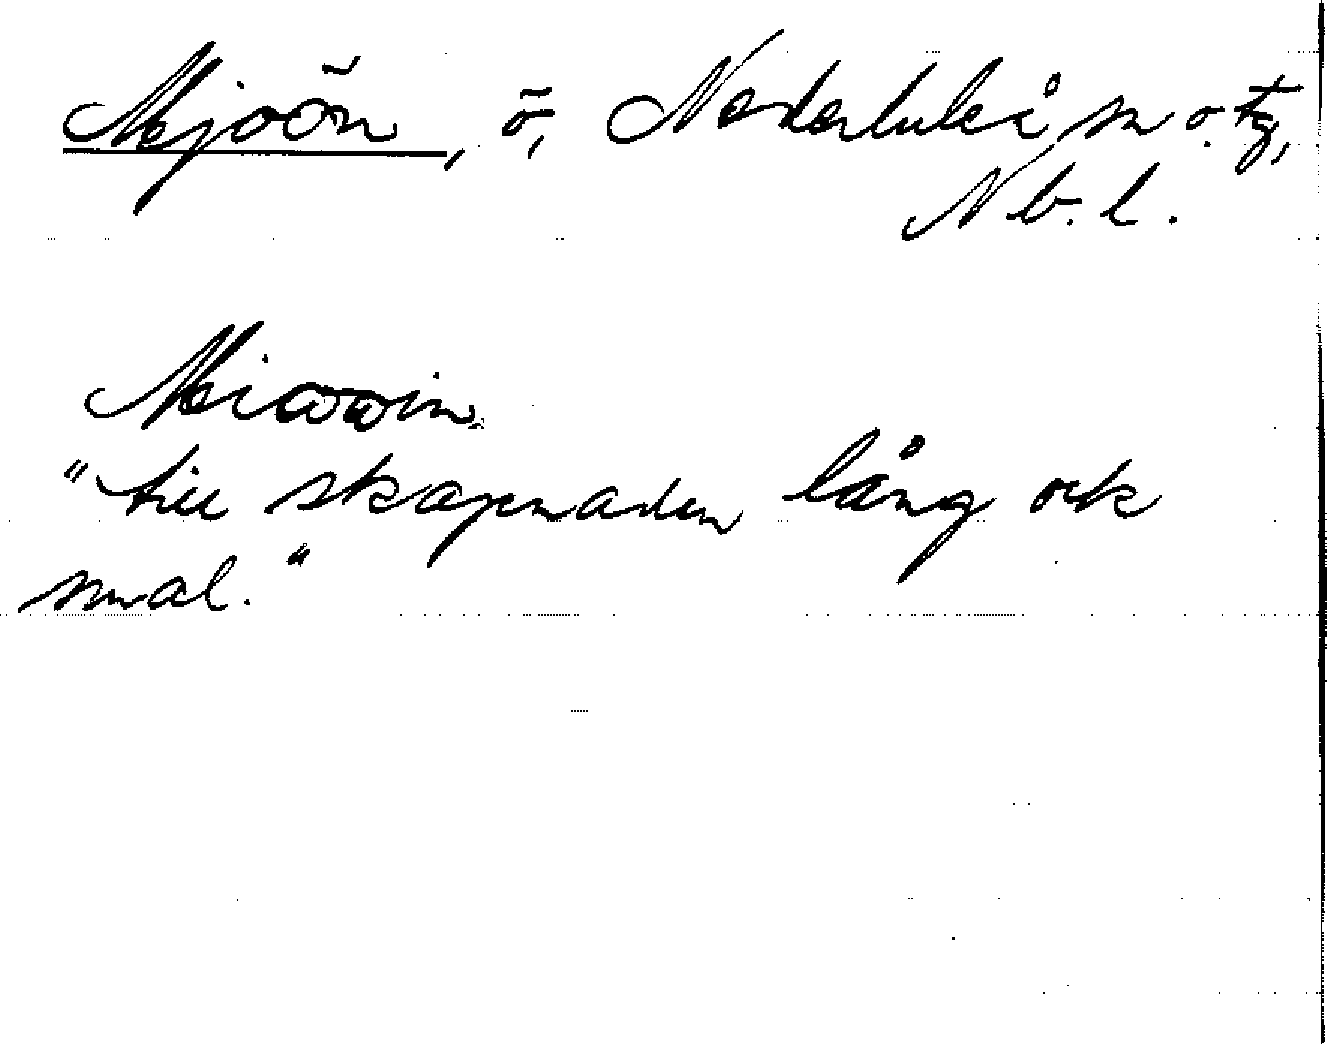 Mjoön, ö, Nederluleå sn o. tg,
Nb. l.
"till skapnaden lång ock
smal."